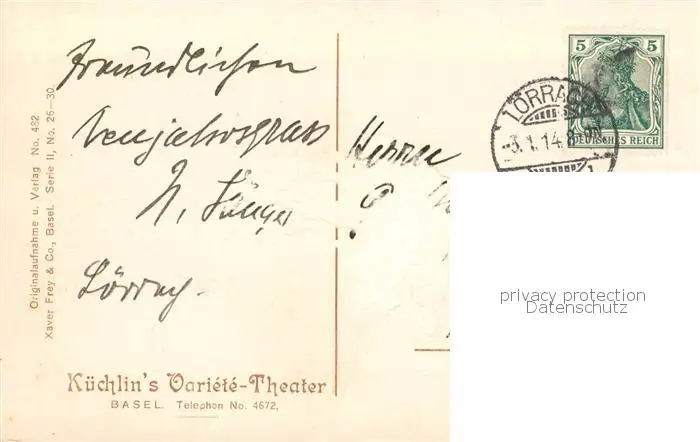 Freundlichen
Neujahrsgruss
Lörrach.
Herrn
Originalaufnahme u. Verlag No. 482
Xaver Frey & Co., Basel. Serie II, No. 26—30.
Küchlin's Variété-Theater
BASEL. Telephon No. 4672.
5 5
DEUTSCHES REICH
LÖRRACH
3.1.14.8-9N
1
privacy protection
Datenschutz